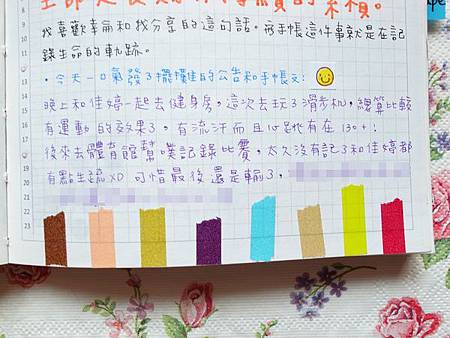 續的累積。
我喜歡幸侖和我分享的這句話。寫手帳這件事就是在記
錄生命的軌跡。
・今天一口氣發了擺攤的公告和手帳文:
晚上和佳婷一起去健身房,這次去玩了滑步机,總算比較
有運動的效果了。有流汗而且心跳有在130+!
後來去體育館幫噗記錄比賽,太久沒有記了和佳婷都
有點生疏XD 可惜最後還是輸了,